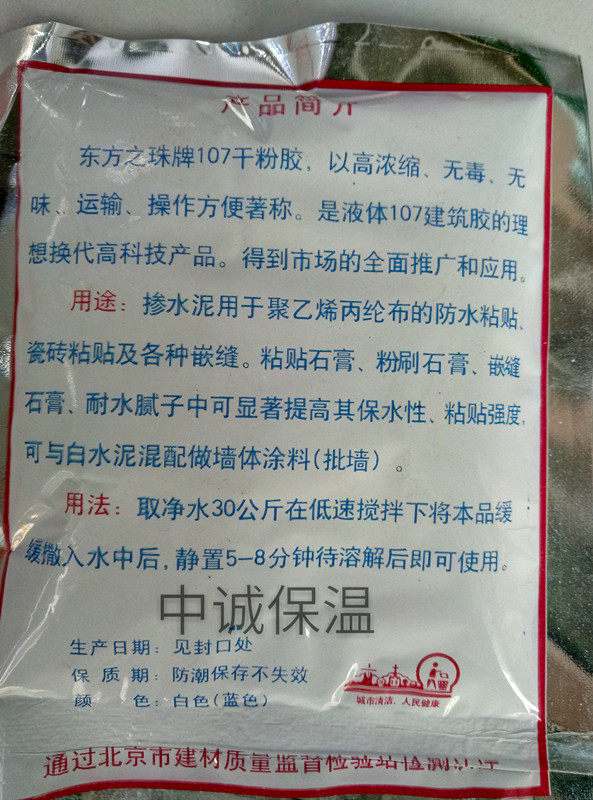 产品简介
东方之珠牌107干粉胶，以高浓缩、无毒、无
味、运输、操作方便著称。是液体107建筑胶的理
想换代高科技产品。得到市场的全面推广和应用。
用途：掺水泥用于聚乙烯丙纶布的防水粘贴、
瓷砖粘贴及各种嵌缝。粘贴石膏、粉刷石膏、嵌缝
石膏、耐水腻子中可显著提高其保水性、粘贴强度，
可与白水泥混配做墙体涂料(批墙)。
用法：取净水30公斤在低速搅拌下将本品缓
缓撒入水中后，静置5-8分钟待溶解后即可使用。
中诚保温
生产日期：见封口处
保质期：防潮保存不失效
颜色：白色(蓝色)
城市清洁、人民健康
通过北京市建材质量监督检验站检测认证